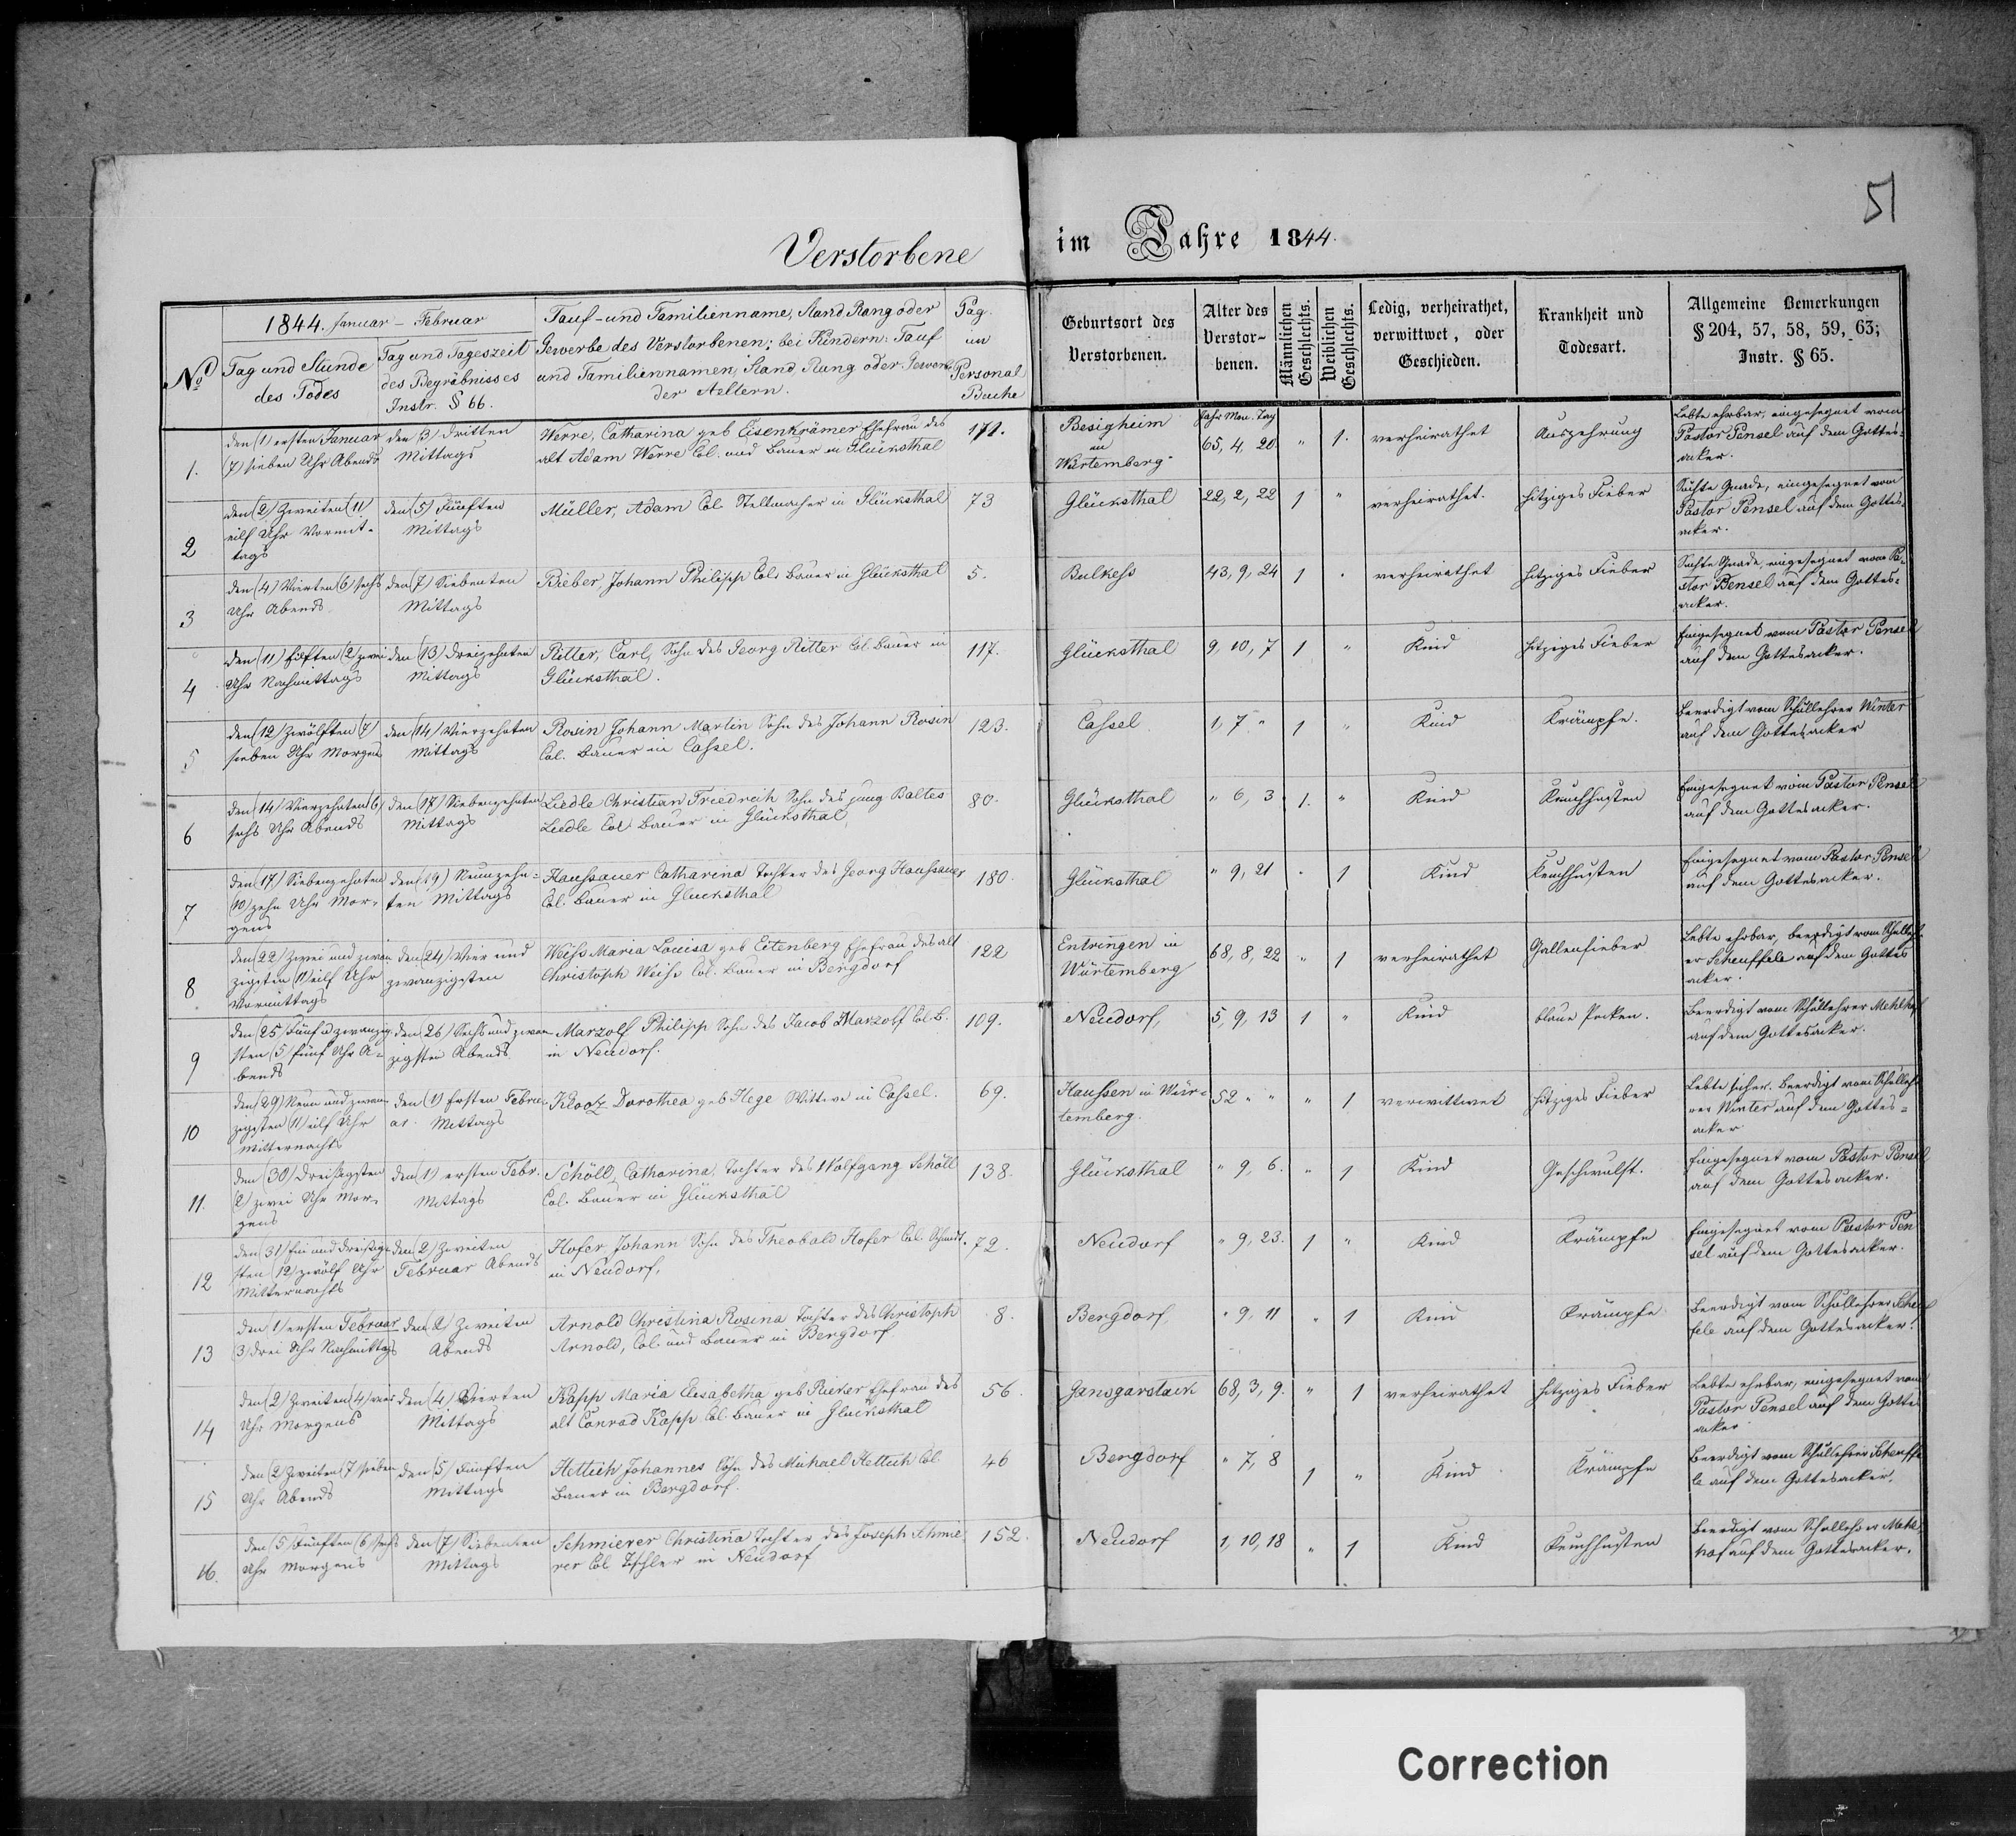 51
Verstorbene im Jahre 1844.
1844. Januar - Februar
No
Tag und Stunde
des Todes
Tag und Tageszeit
des Begräbnisses
Instr. § 66.
Tauf- und Familienname, Stand Rang oder
Gewerbe des Verstorbenen; bei Kindern: Tauf
und Familiennamen, Stand Rang oder Gewerbe
der Aeltern.
Pag.
im
Personal
Buche
Geburtsort des
Verstorbenen.
Alter des
Verstor-
benen.
Männlichen
Geschlechts.
Weiblichen
Geschlechts.
Ledig, verheirathet,
verwittwet, oder
Geschieden.
Krankheit und
Todesart.
Allgemeine Bemerkungen
§ 204, 57, 58, 59, 63;
Instr. § 65.
1.
den (1) ersten Januar
(7) sieben Uhr Abends
den (3) dritten
Mittags
Werre, Catharina geb Eisenkrämer Ehefrau des
alt Adam Werre Col. und Bauer in Glücksthal
171.
Besigheim
in
Würtemberg
Jahr Mon. Tag
65, 4, 20
" 1.
verheirathet
Auszehrung
Lebte ehrbar, eingesegnet vom
Pastor Pensel auf dem Gottes-
acker.
2
den (2) Zweiten (11)
eilf Uhr Vormit-
tags
den (5) Fünften
Mittags
Müller, Adam Col Stellmacher in Glücksthal
73
Glücksthal
22, 2, 22
1 "
verheirathet.
hitziges Fieber
Suchte Gnade, eingesegnet vom
Pastor Pensel auf dem Gottes-
acker.
3
den (4) Vierten (6) sechs
Uhr Abends
den (7) Siebenten
Mittags
Bieber, Johann Philipp Col. Bauer in Glücksthal
5.
Bulkess
43, 9, 24
1 "
verheirathet
hitziges Fieber
Suchte Gnade, eingesegnet vom Pa-
stor Pensel auf dem Gottes-
acker.
4
den (11) Eilften (2) zwei
Uhr Nachmittags
den (13) dreizehnten
Mittags
Ritter, Carl, Sohn des Georg Ritter Col. Bauer in
Glücksthal.
117.
Glücksthal
9, 10, 7
1 "
Kind
hitziges Fieber
Eingesegnet vom Pastor Pensel
auf dem Gottesacker.
5
den (12) Zwölften (7)
sieben Uhr Morgens
den (14) Vierzehnten
Mittags
Rosin Johann Martin Sohn des Johann Rosin
Col. Bauer in Cassel.
123.
Cassel
1, 7 "
1 "
Kind
Krämpfe.
Beerdigt vom Schullehrer Winter
auf dem Gottesacker
6
den (14) Vierzehnten (6)
sechs Uhr Abends
den (17) Siebenzehnten
Mittags
Liedle Christian Friedreih Sohn des jung Baltes
Liedle Col Bauer in Glücksthal,
80.
Glücksthal
" 6, 3
1. "
Kind
Keuchhusten
Eingesegnet vom Pastor Pensel
auf dem Gottesacker.
7
den (17) Siebenzehnten
(10) zehn Uhr Mor-
gens
den (19) Neunzehn-
ten Mittags
Haussauer Catharina Tochter des Georg Haussauer
Col. Bauer in Glücksthal
180.
Glücksthal
" 9, 21
" 1
Kind
Keuchhusten
Eingesegnet vom Pastor Pensel
auf dem Gottesacker.
8
den (22) Zwei und zwan-
zigsten (11) eilf Uhr
Vormittags
den (24) Vier und
zwanzigsten
Weiss Maria Louisa geb Eitenberg Ehefrau des alt
Christoph Weiss Col. Bauer in Bergdorf
122
Entringen in
Würtemberg
68, 8, 22
" 1
verheirathet
Gallenfieber
Lebte ehrbar, beerdigt vom Schulleh-
er Scheuffele auf dem Gottes
acker.
9
den (25) Fünf u zwanzig-
sten (5) fünf Uhr A-
bends
den (26) Sechs und zwan-
zigsten Abends
Marzolf Philipp Sohn des Jacob Marzolf Col. B.
in Neudorf.
109.
Neudorf,
5, 9, 13
1 "
Kind
blaue Pocken.
Beerdigt vom Schullehrer Mehlhof
auf dem Gottesacker.
10
den (29) Neun und zwan-
zigsten (11) eilf Uhr
Mitternachts
den (1) Ersten Febru-
ar Mittags
Klooz Dorothea geb Hege Wittwe in Cassel.
69.
Haussen in Wür-
temberg.
52 " "
" 1
verwittwet
hitziges Fieber
Lebte sicher. Beerdigt vom Schulleh-
rer Winter auf dem Gottes-
acker
11.
den (30) Dreissigsten
(2) zwei Uhr Mor-
gens
den (1) ersten Febr.
Mittags
Schöll, Catharina, Tochter des Wolfgang Schöll
Col. Bauer in Glücksthal
138.
Glücksthal
" 9, 6.
" 1
Kind
Geschwulst.
Eingesegnet vom Pastor Pensel
auf dem Gottesacker.
12
den (31) Ein und dreissig-
sten (12) zwölf Uhr
Mitternachts
den (2) Zweiten
Februar Abends
Hofer Johann Sohn des Theobald Hofer Col. Schmidt.
in Neudorf,
72.
Neudorf
" 9, 23.
1 "
Kind
Krämpfe
Eingesegnet vom Pastor Pen
sel auf dem Gottesacker.
13
den (1) ersten Februar
(3) drei Uhr Nachmittags
den (2) Zweiten
Abends
Arnold Christina Rosina Tochter des Christoph
Arnold, Col. und Bauer in Bergdorf
8.
Bergdorf
" 9, 11
" 1
Kind
Krämpfe
Beerdigt vom Schullehrer Scheuf
fele auf dem Gottesacker.
14
den (2) Zweiten (4) vier
Uhr Morgens
den (4) Vierten
Mittags
Kapp Maria Elisabetha geb Rieker Ehefrau des
alt Conrad Kapp Col. Bauer in Glücksthal
56
68, 3, 9.
" 1
verheirathet
hitziges Fieber
Lebte ehrbar, eingesegnet vom
Pastor Pensel auf dem Gottes
acker
15
den (2) Zweiten (7) sieben
Uhr Abends
den (5) Fünften
Mittags
Hettich Johannes Sohn des Michael Hettich Col.
Bauer in Bergdorf.
46
Bergdorf
" 7, 8
1 "
Kind
Krämpfe
Beerdigt vom Schullehrer Scheuffe
le auf dem Gottesacker.
16.
den (5) Fünften (6) sechs
Uhr Morgens
den (7) Siebenten
Mittags
Schmierer Christina Tochter des Joseph Schmie-
rer Col Tischler in Neudorf
152.
Neudorf
1, 10, 18
" 1
Kind
Keuchhusten
Beerdigt vom Schullehrer Mehl
hof auf dem Gottesacker.
Correction